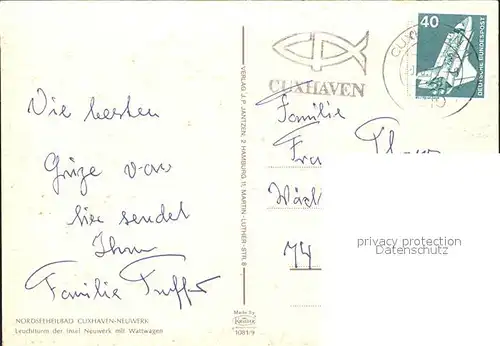 Die besten
Grüße von
hier sendet
Ihnen
Familie
NORDSEEHEILBAD CUXHAVEN-NEUWERK
Leuchtturm der Insel Neuwerk mit Wattwagen
VERLAG J. P. JANTZEN, 2 HAMBURG 11, MARTIN-LUTHER-STR. 8
Made by
Krüger
1081/9
CUXHAVEN
40
DEUTSCHE BUNDESPOST
Familie
74
privacy protection
Datenschutz